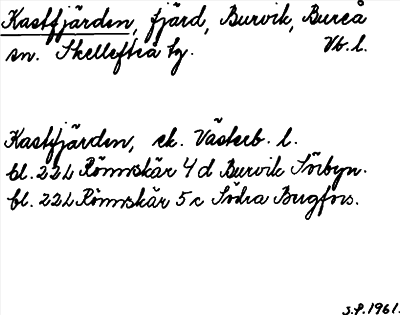 Kastfjärden, fjärd, Burvik, Bureå
sn. Skellefteå tg. Vb. l.
Kastfjärden, ek. Västerb. l.
bl. 22L Rönnskär 4 d Burvik Sörbyn.
bl. 22L Rönnskär 5 c Södra Bugfors.
J.P. 1961.